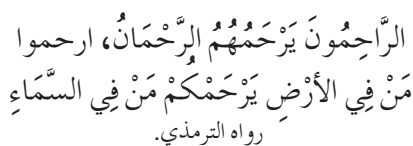 الرَّاحِمُونَ يَرْحَمُهُمُ الرَّحْمَانُ، ارحموا
مَنْ فِي الأَرْضِ يَرْحَمْكُمْ مَنْ فِي السَّمَاءِ
رواه الترمذي.